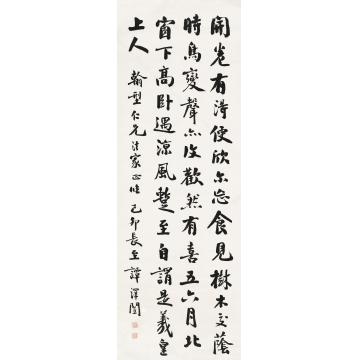 開卷有得便欣尔忘食見樹木交蔭
時鳥變聲亦復歡然有喜五六月北
窗下高卧遇涼風蹔至自謂是羲皇
上人
翰型仁兄法家正临 己卯長至譚澤闓